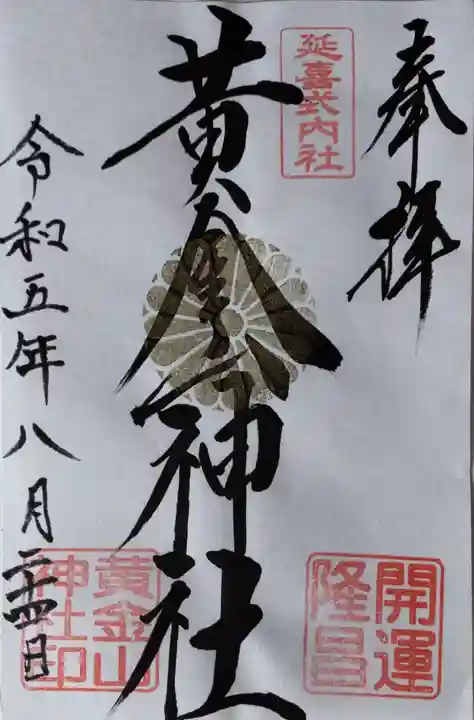 奉拝
延喜式内社
開運
隆昌
黄金山神社
黄金山
神社印
令和五年八月二十四日